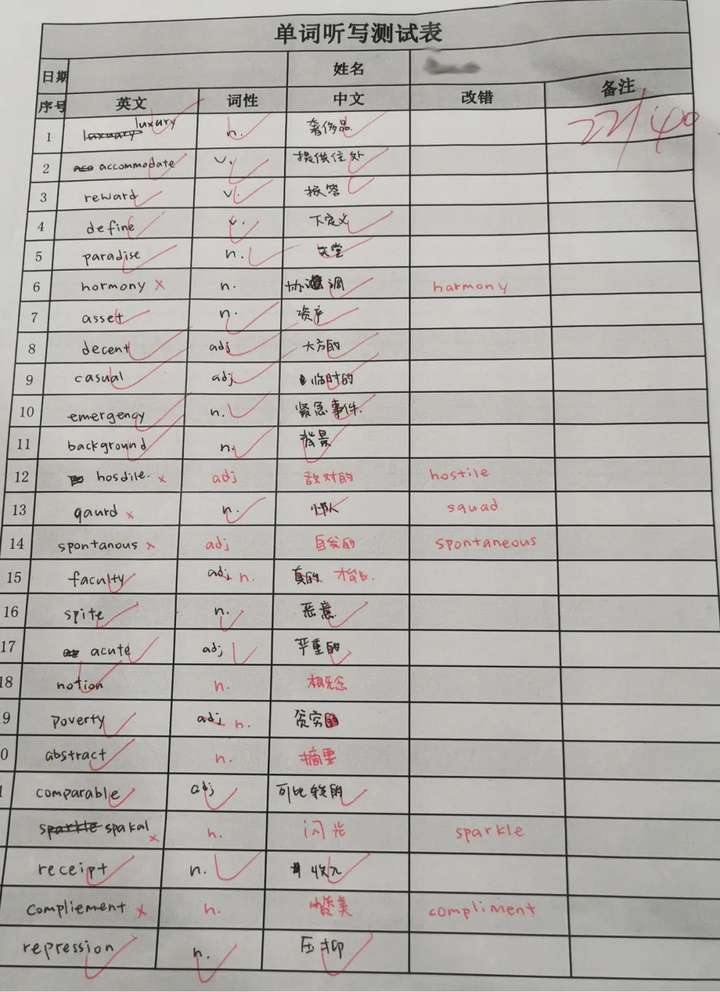 单词听写测试表
日期 姓名
序号 英文 词性 中文 改错 备注
1 luxuary luxury n. 奢侈品 22/40
2 acc accommodate v. 提供住处
3 reward v. 报答
4 define v. 下定义
5 paradise n. 天堂
6 hormony × n. 协调 harmony
7 asset n. 资产
8 decent adj 大方的
9 casual adj 临时的
10 emergency n. 紧急事件.
11 background n. 背景
12 hosdile. × adj 敌对的 hostile
13 qaurd × n. squad
14 spontanous × adj 自发的 spontaneous
15 faculty adj n. 真的
16 spite n. 恶意
17 acute adj 严重的
18 notion n. 概念
9 poverty adj n. 贫穷的
0 abstract n. 摘要
1 comparable adj 可比较的
sparkle spakal × n. 闪光 sparkle
receipt n. 收入
compliement × n. 赞美 compliment
repression n. 压抑